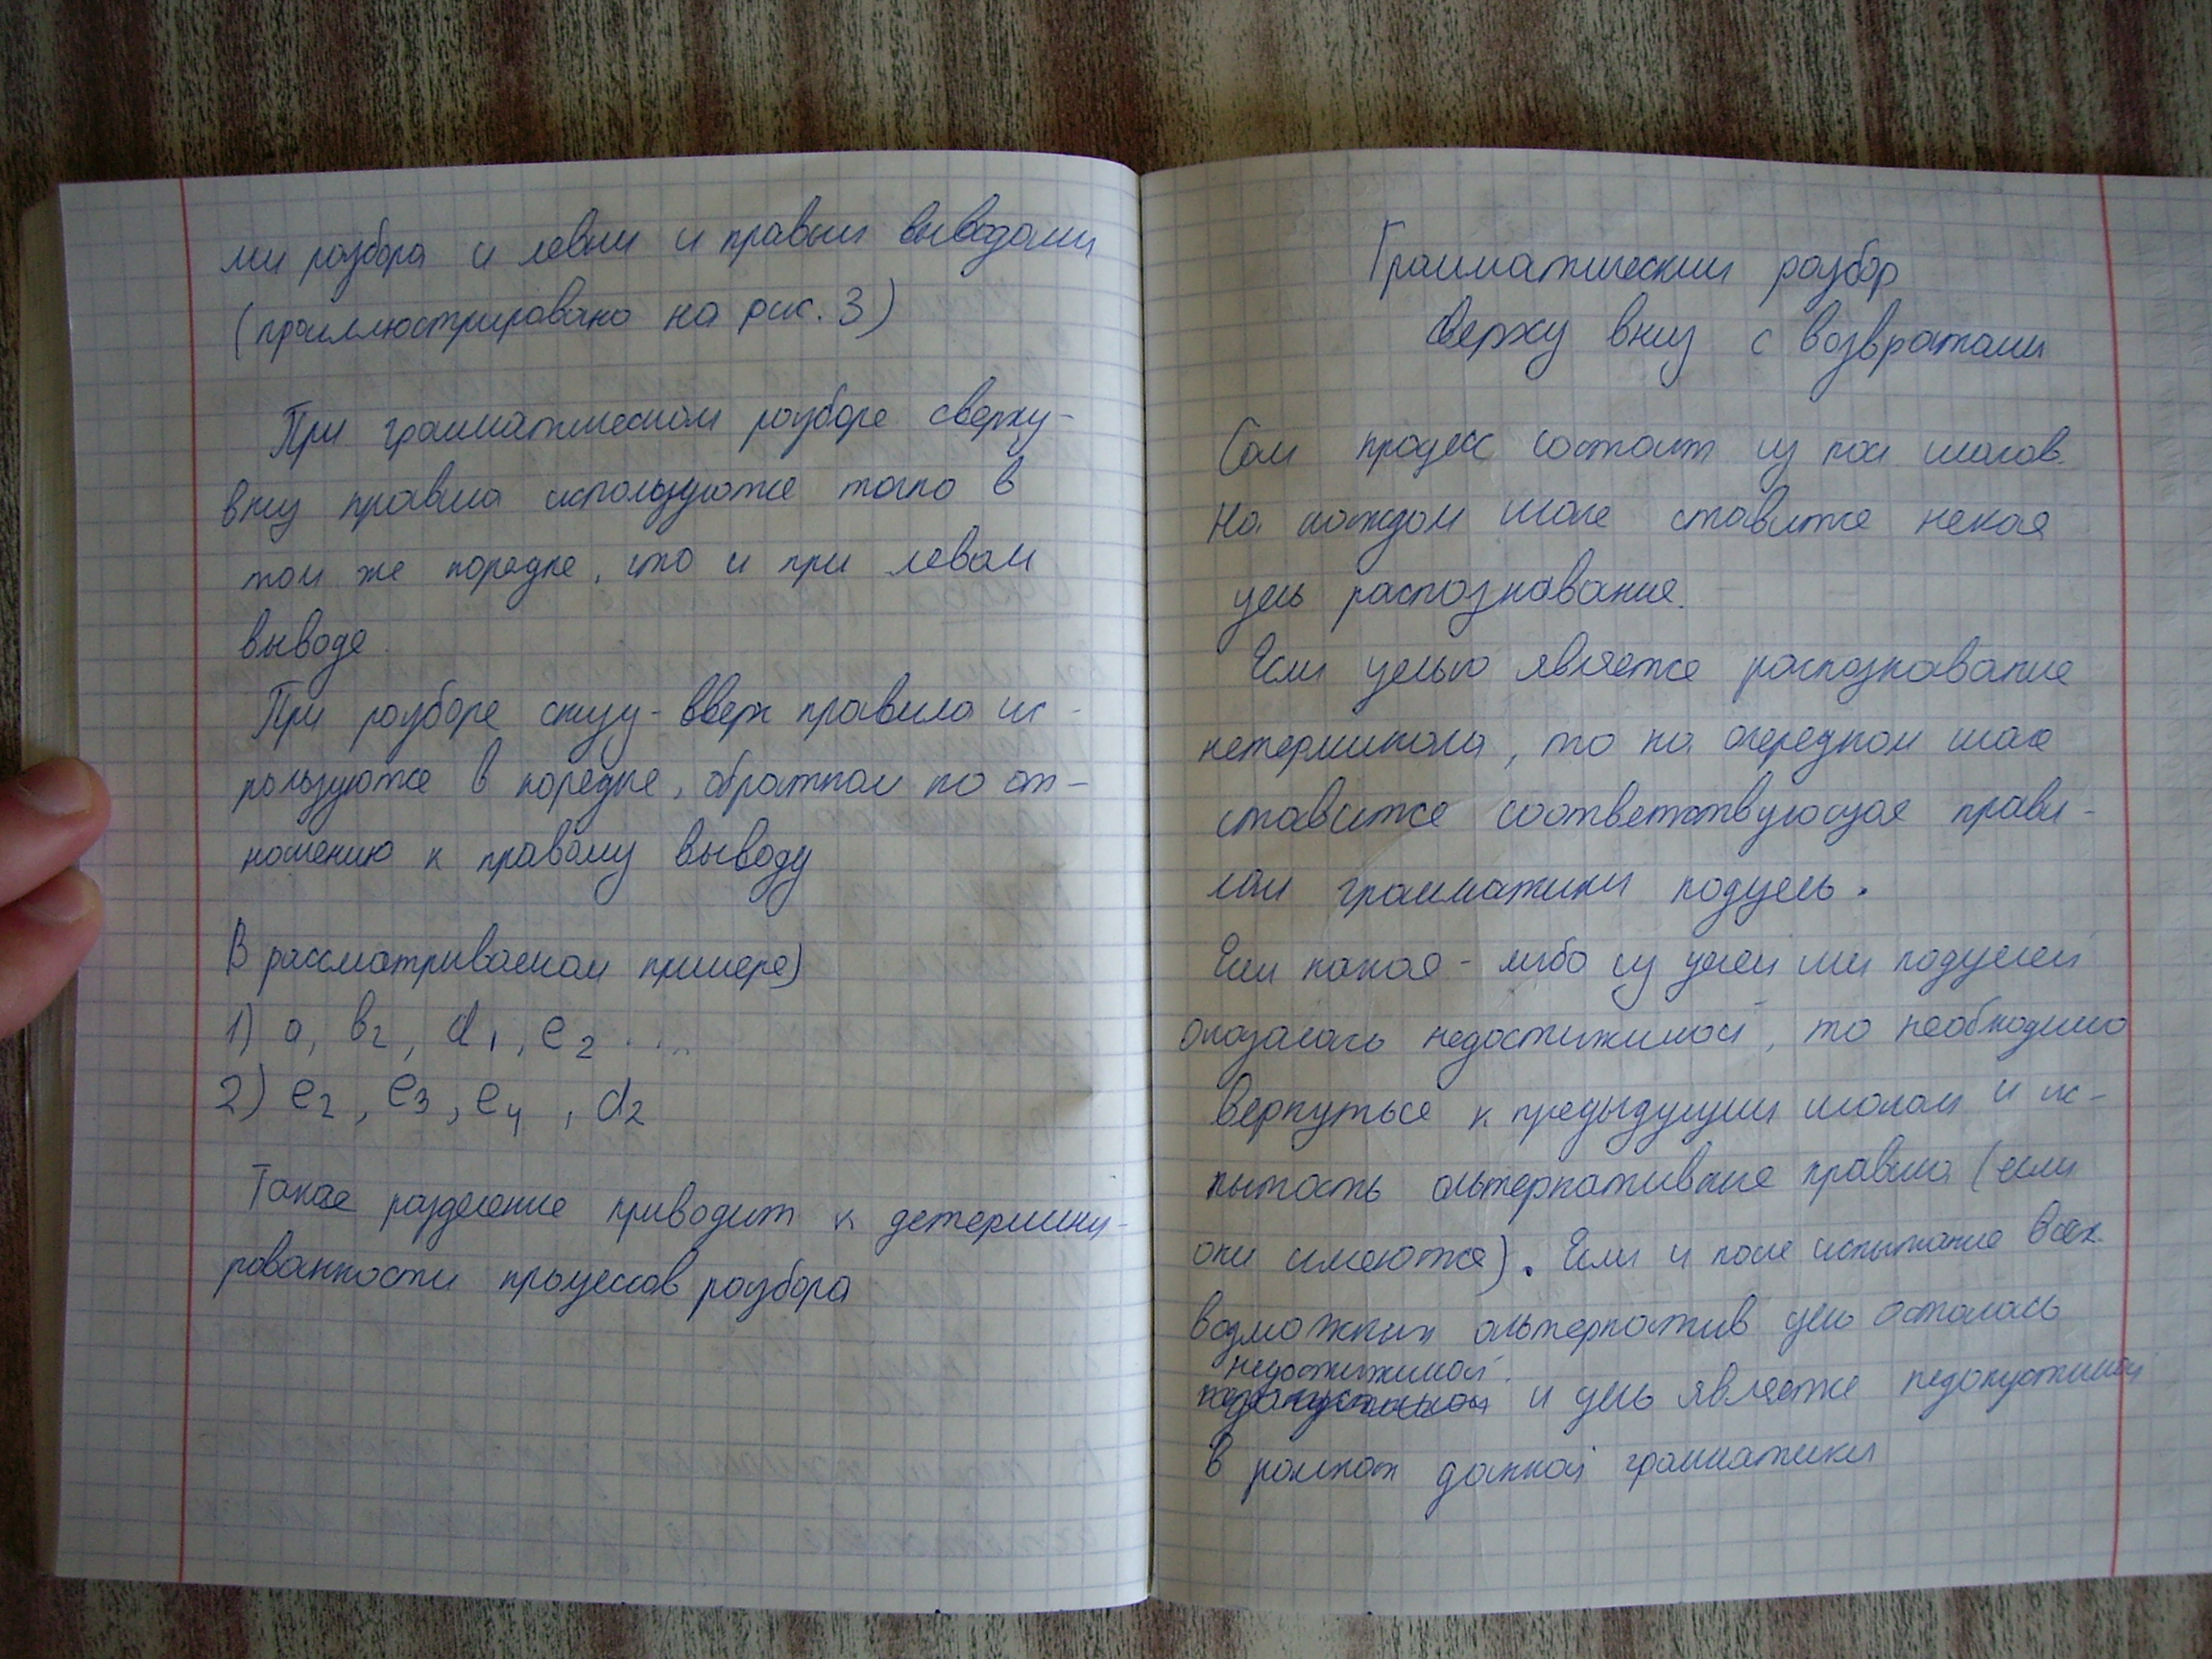 ми разбора и левым и правым выводами
(проиллюстрировано на рис. 3)
При грамматическом разборе сверху-
вниз правила используются точно в
том же порядке, что и при левом
выводе
При разборе снизу-вверх правила ис-
пользуются в порядке, обратном по от-
ношению к правому выводу
В рассматриваемом примере)
1) a, b2, d1, e2 ....
2) e2, e3, e4, d2
Такое разделение приводит к детермини-
рованности процессов разбора
Грамматический разбор
сверху вниз с возвратами
Сам процесс состоит из шагов.
На каждом шаге ставится некая
цель распознавания.
Если целью является распознавание
нетерминала, то на очередном шаге
ставится соответствующая прави-
лам грамматики подцель.
Если какая-либо из целей или подцелей
оказалась недостижимой, то необходимо
вернуться к предыдущим шагам и ис-
пытать альтернативные правила (если
они имеются). Если и после испытания всех
возможных альтернатив цель осталась
недостижимой.
и цель является недопустимой
в рамках данной грамматики